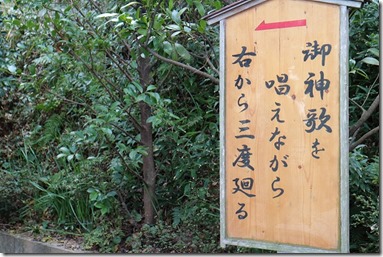 御神歌を
唱えながら
右から三度廻る